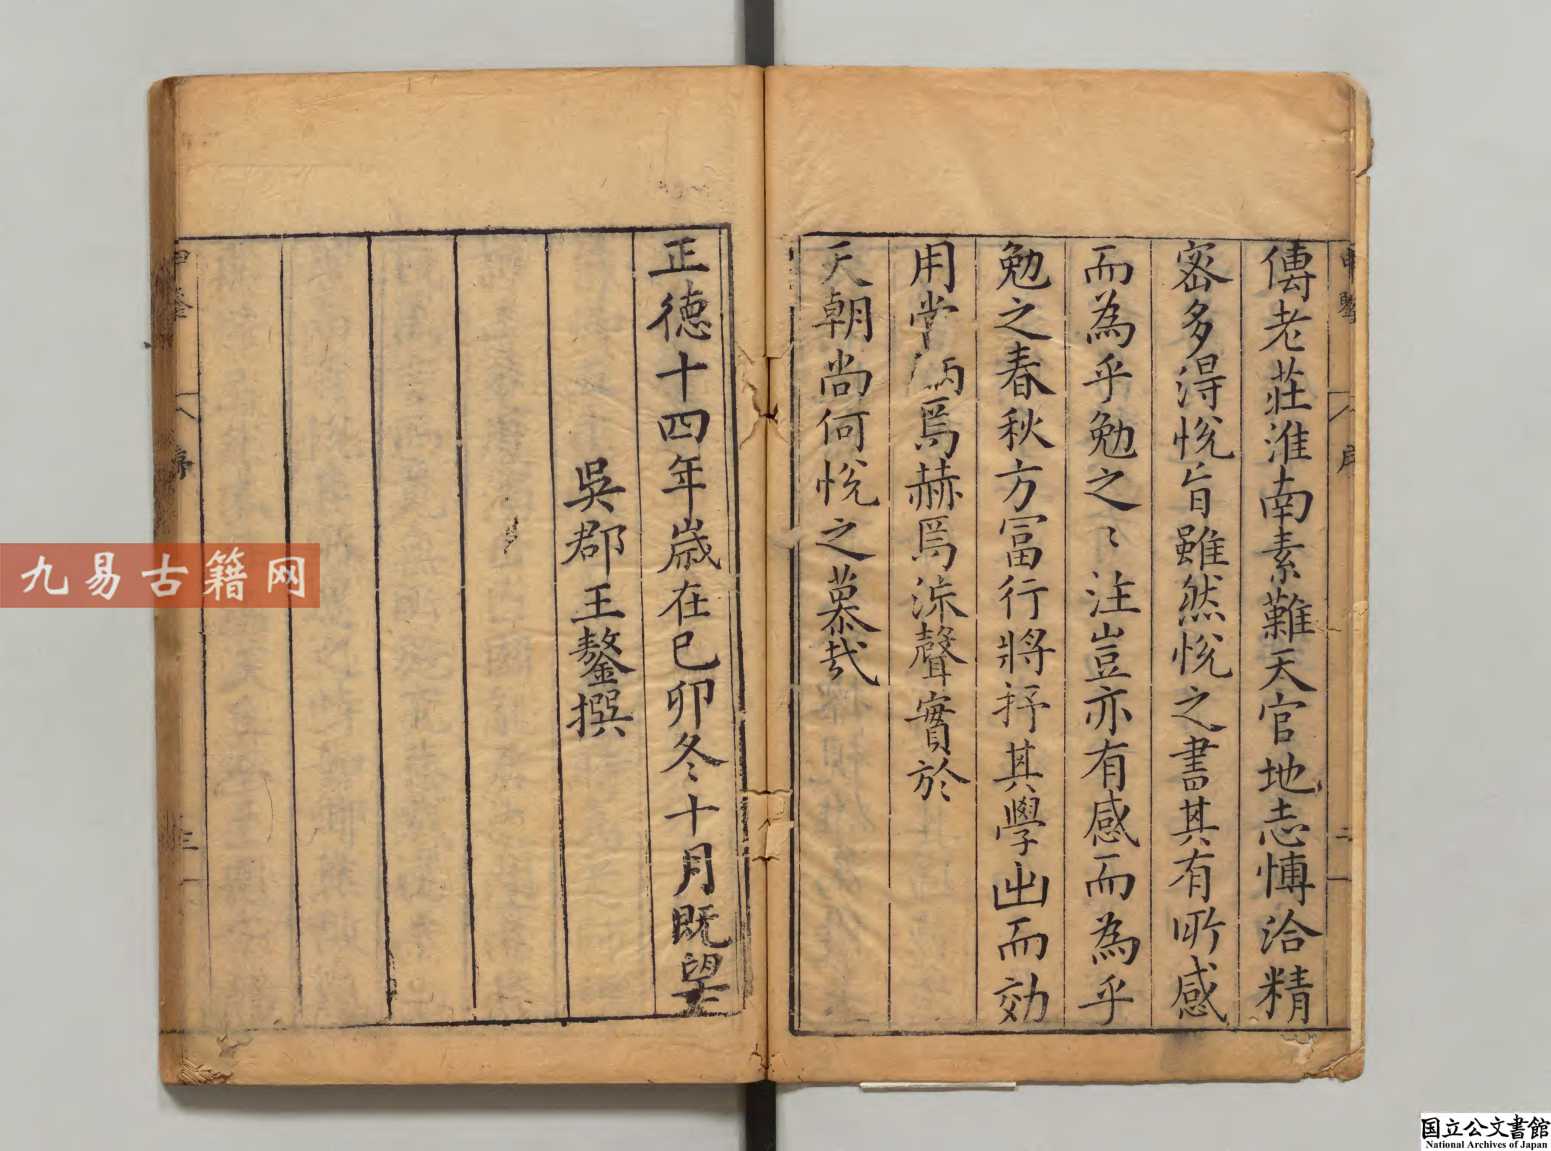 傳老莊淮南素難天官地志慱洽精
宻多淂悅旨雖然悅之書其有所感
而為乎勉之〻注豈亦有感而為乎
勉之春秋方冨行將抒其學出而効
用當 焉赫焉流聲實於
天朝尚何悅之慕哉
正德十四年嵗在己卯冬十月既望
吳郡王鏊撰
申鑒 序 二
申鑒 序 三
九易古籍网
国立公文書館
National Archives of Japan